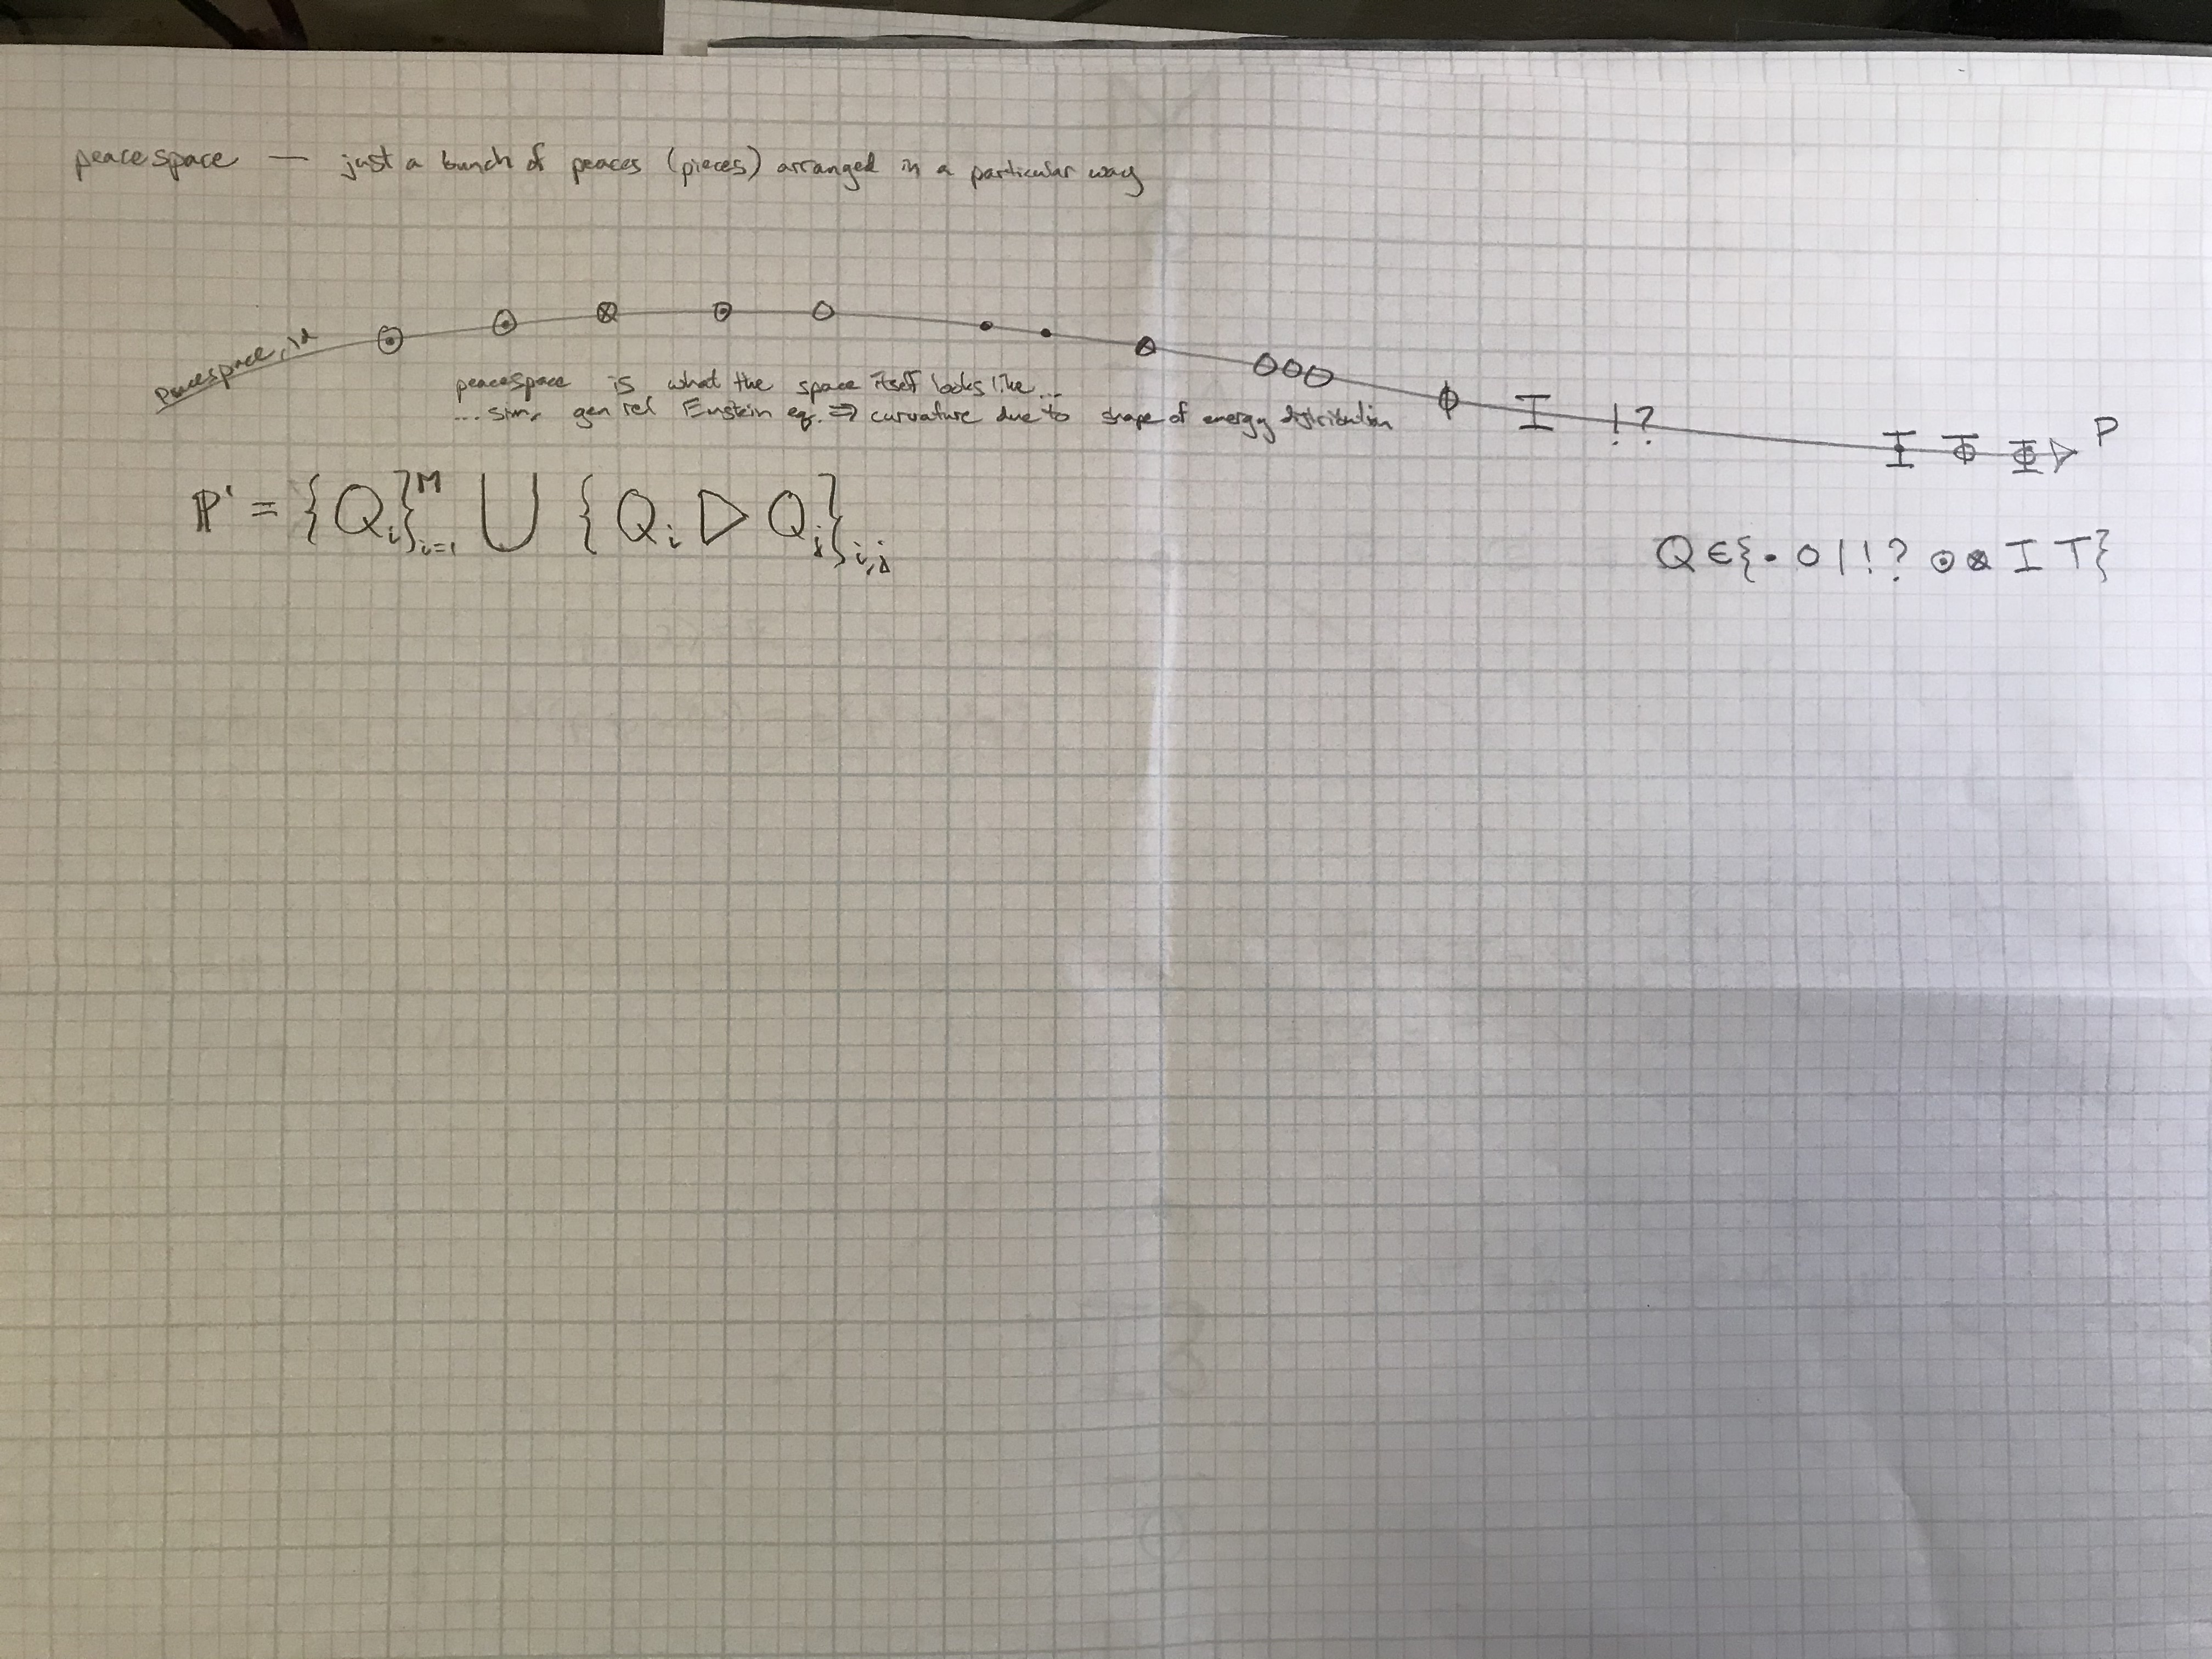 peacespace — just a bunch of peaces (pieces) arranged in a particular way
peacespace, 1d
⊙ ⊙ ⊗ ⊙ O • • ⊗ OOO Φ I !? I P
peacespace is what the space itself looks like...
...sim. gen rel Einstein eq. ⇒ curvature due to shape of energy distribution
ℙ' = {Q_i}_{i=1}^M ∪ {Q_i ▷ Q_j}_{i,j}
Q ∈ { • O | ! ? ⊙ ⊗ I T }